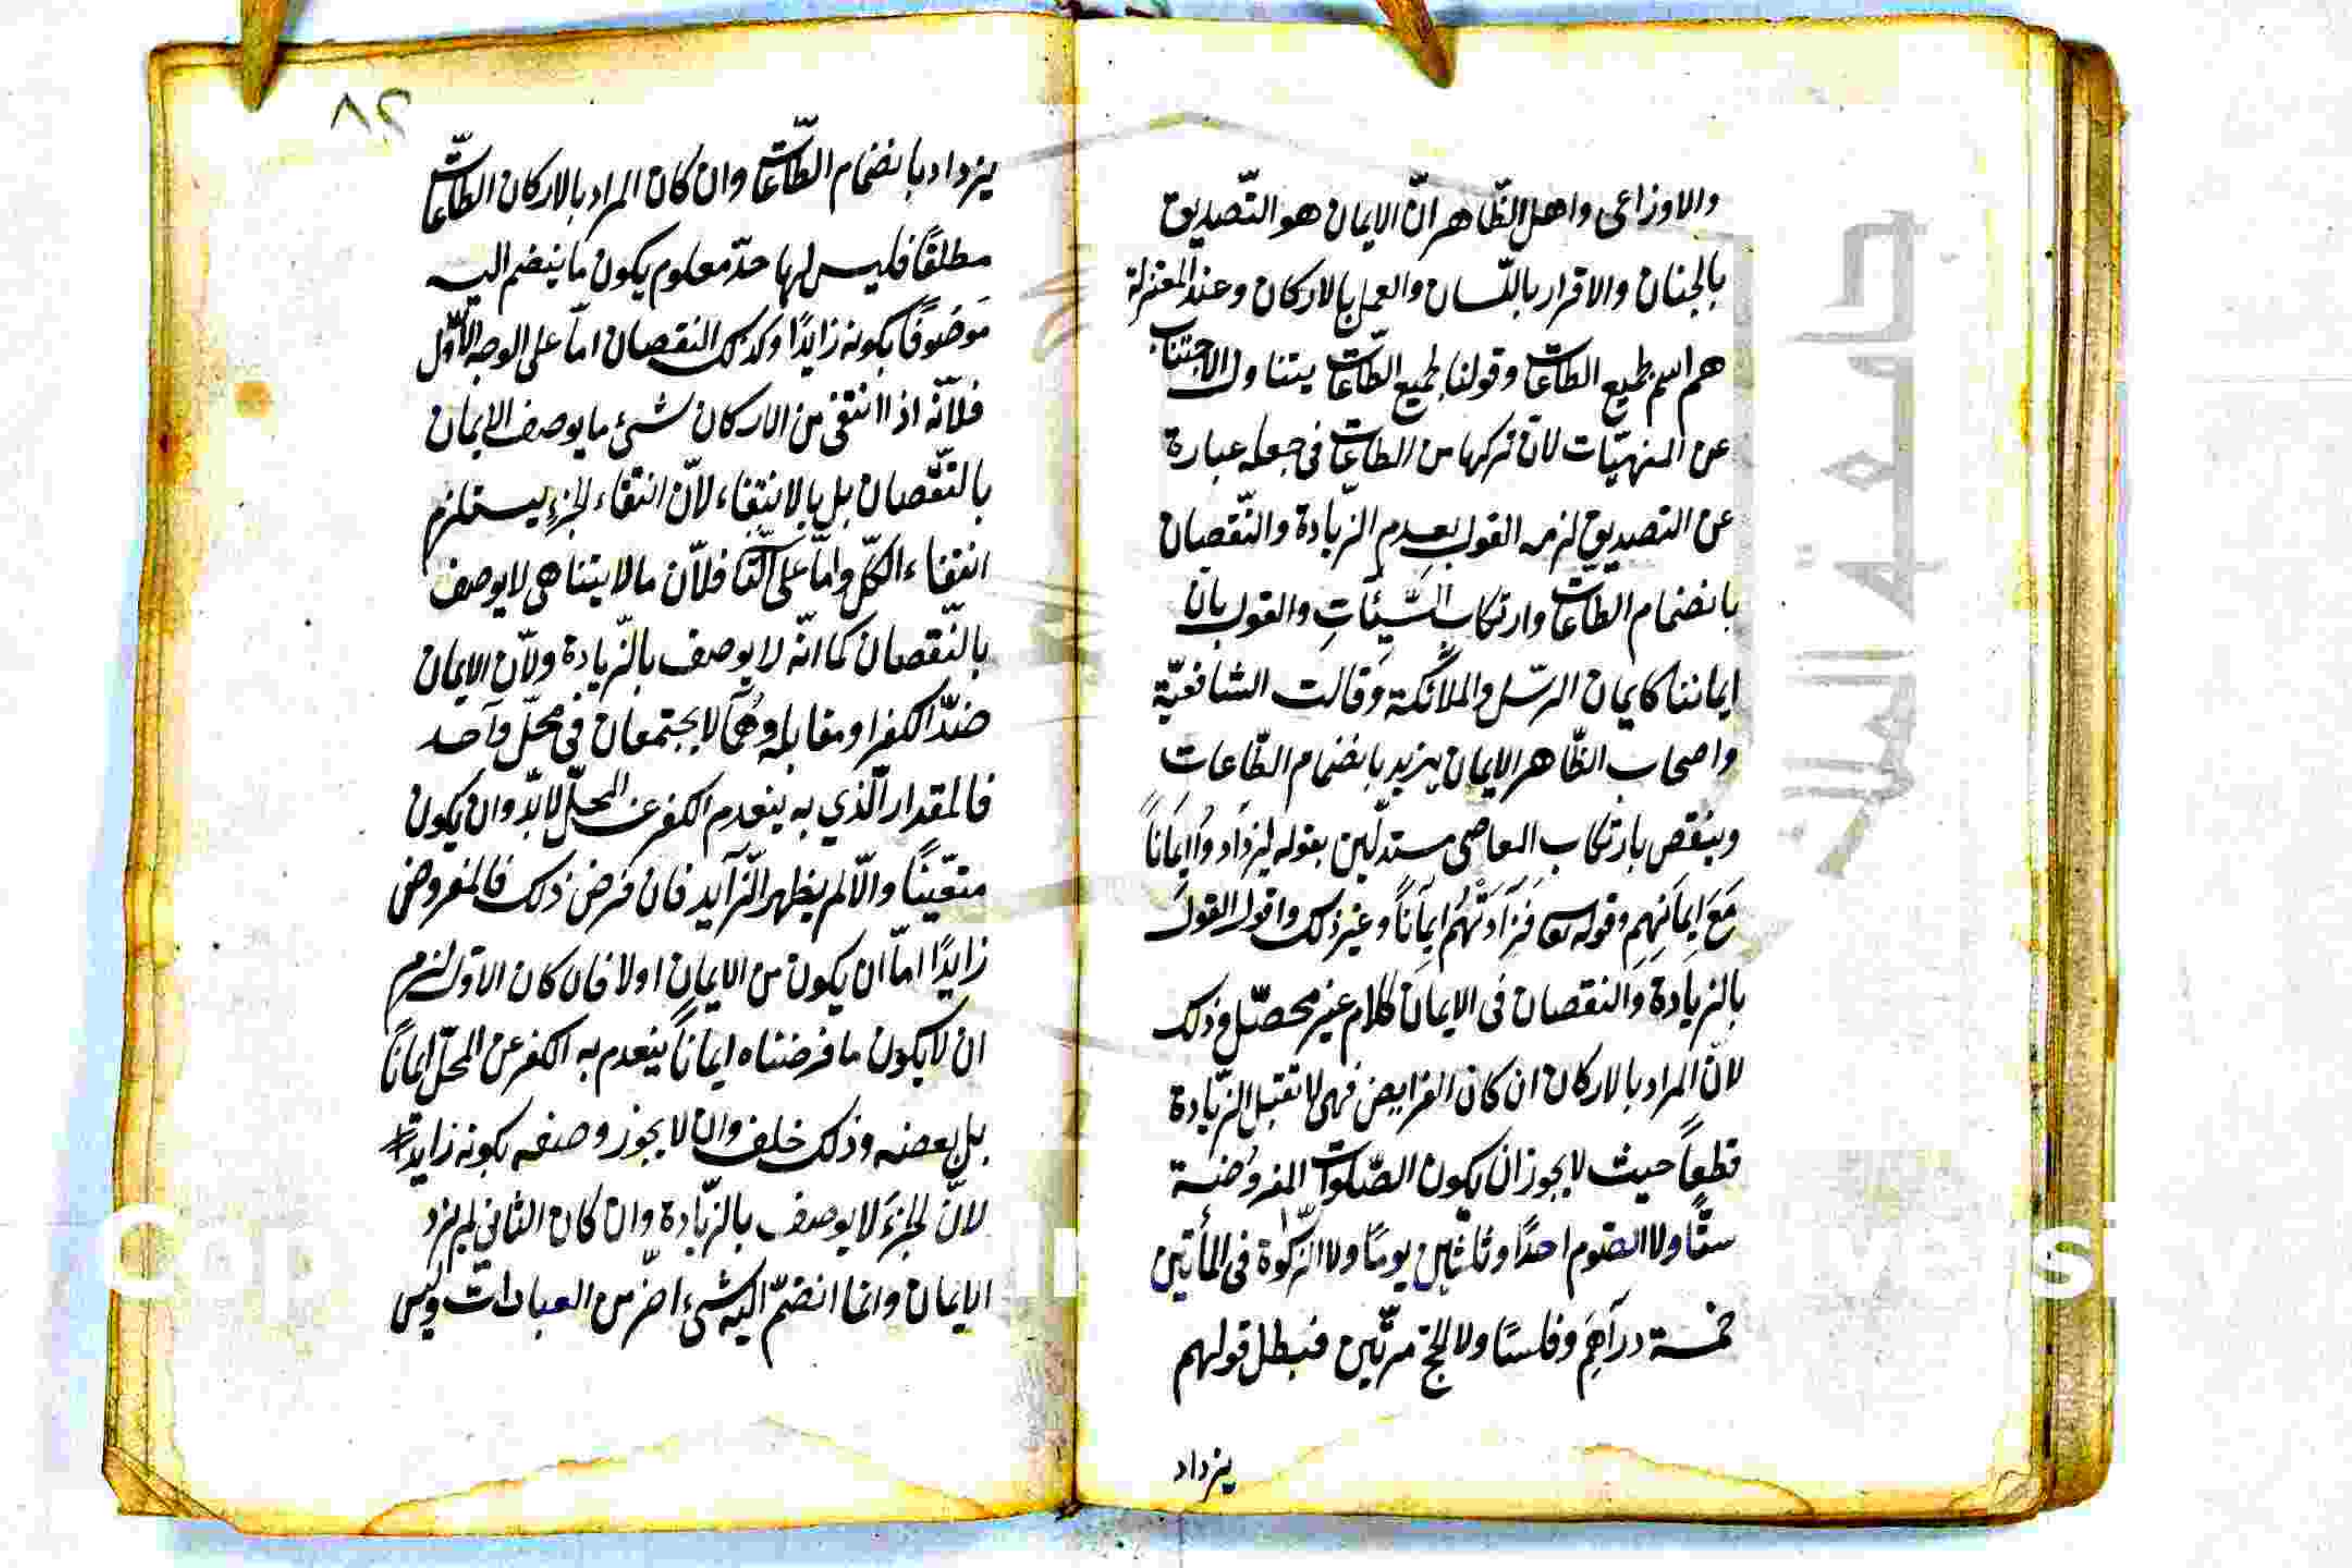 والاوزاعى واهل الظّاهر انّ الايمان هو التّصديق
بالجنان والاقرار باللّسان والعمل بالاركان وعند المعتزلة
هم اسم لجميع الطاعات وقولنا لجميع الطّاعات يتناول الاجتناب
عن المنهيّات لانّ تركها من الطاعات فى جعله عبارة
عن التصديق لزمه القول بعدم الزّيادة والنّقصان
بانضمام الطاعات وارتكاب السَّيِّئاتِ والقول بانّ
ايماننا كايمان الرّسل والملائكة وقالت الشافعيّة
واصحاب الظّاهر الايمان يزيد بانضمام الطّاعاتِ
وينقص بارتكاب المعاصى مستدلّين بقوله لِيَزدَادوُا اِيمَاناً
مَعَ اِيمَانِهِم وقوله تعا فَزَادَتْهُم اِيمَاناً وغير ذلك واقول القول
بالزيادة والنقصان فى الايمان كلام غير محصّل وذلك
لانّ المراد بالاركان ان كان الفرايض فهى لا تقبل الزّيادة
قطعاً حيث لا يجوز ان يكون الصّلوات المفروضة
ستًّا ولا الصّوم احدًا وثلثين يومًا ولا الزّكوة فى المأتين
خمسة دراهَم وفلسًا ولا الحجّ مرّتين فبطل قولهم
يزداد
٨٢
يزداد بانضمام الطّاعات وان كان المراد بالاركان الطّاعات
مطلقًا فليس لها حدّ معلوم يكون ما ينضم اليه
مَوصُوفًا بكونه زايدًا وكذلك النقصان امّا على الوجه الاوّل
فلانّه اذا انتفى من الاركان شئ ما يوصف الايمان
بالنّقصان بل بالانتفاء لانّ انتفاء الجزءِ يستلزم
انتفاء الكلّ وامّا على الثّا فلانّ ما لا يتناهى لا يوصف
بالنّقصان كما انّه لا يوصف بالزّيادة ولانّ الايمان
ضدّ الكفر او مقابله وهُما لا يجتمعان فى محلّ واحد
فالمقدار الّذي به ينعدم الكفر عن المحلّ لا بدّ وان يكون
متعيّنًا والّا لم يظهر الزّايد فان فرض ذلك فالمفروض
زايدًا امّا ان يكون من الايمان اولا فان كان الاول لزم
ان لا يكون ما فرضناه ايماناً ينعدم به الكفر عن المحلّ ايماناً
بل بعضه وذلك خلف وان لا يجوز وصفه بكونه زايدًا
لانّ الجزءَ لا يوصف بالزّيادة وان كان الثاني لم يزد
الايمان وانما انضمّ اليه شئ اخر من العبادات وليس